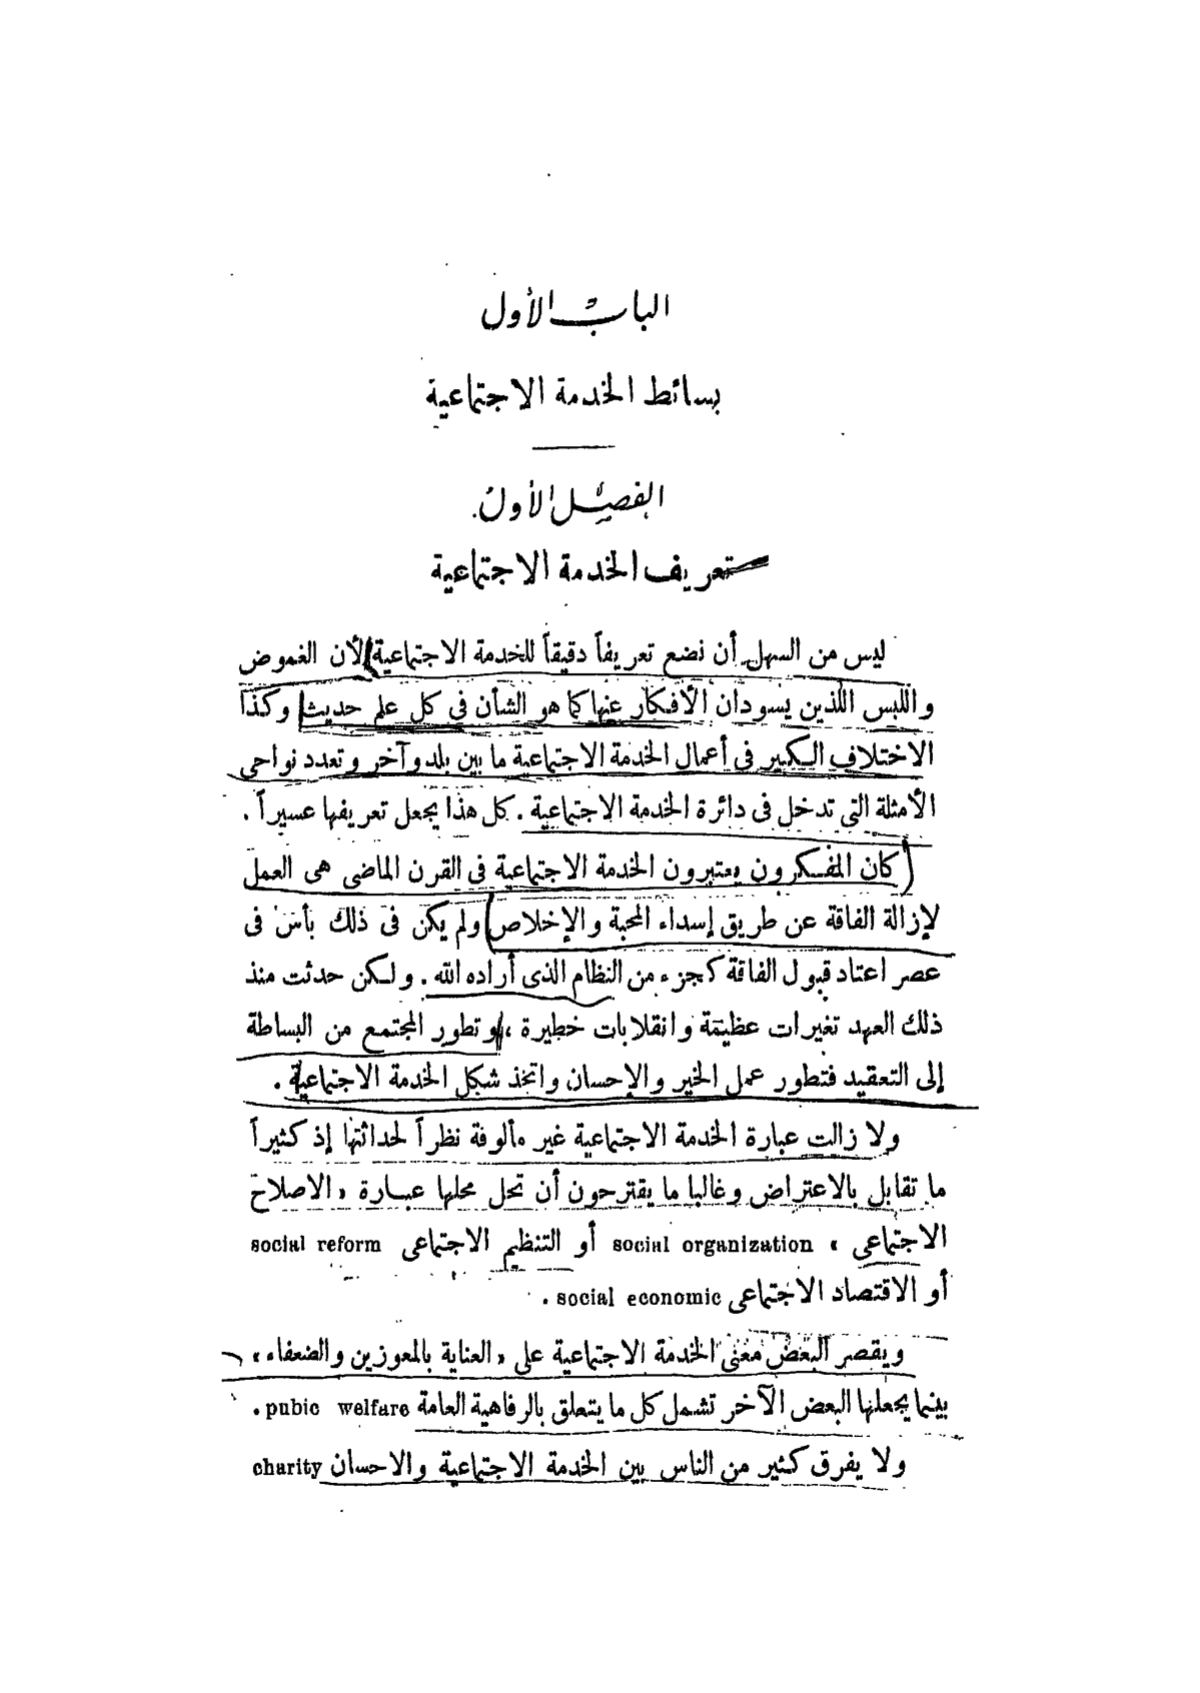 الباب الأول
بسائط الخدمة الاجتماعية
الفصل الأول
تعريف الخدمة الاجتماعية
ليس من السهل أن نضع تعريفاً دقيقاً للخدمة الاجتماعية لأن الغموض
واللبس اللذين يسودان الأفكار عنها كما هو الشأن فى كل علم حديث وكذا
الاختلاف الكبير فى أعمال الخدمة الاجتماعية ما بين بلد وآخر وتعدد نواحى
الأمثلة التى تدخل فى دائرة الخدمة الاجتماعية . كل هذا يجعل تعريفها عسيراً .
كان المفكرون يعتبرون الخدمة الاجتماعية فى القرن الماضى هى العمل
لإزالة الفاقة عن طريق إسداء المحبة والإخلاص ولم يكن فى ذلك بأس فى
عصر اعتاد قبول الفاقة كجزء من النظام الذى أراده الله . ولكن حدثت منذ
ذلك العهد تغيرات عظيمة وانقلابات خطيرة ، وتطور المجتمع من البساطة
إلى التعقيد فتطور عمل الخير والإحسان واتخذ شكل الخدمة الاجتماعية .
ولا زالت عبارة الخدمة الاجتماعية غير مألوفة نظراً لحداثتها إذ كثيراً
ما تقابل بالاعتراض وغالبا ما يقترحون أن تحل محلها عبارة « الاصلاح
الاجتماعى » social organization أو التنظيم الاجتماعى social reform
أو الاقتصاد الاجتماعى social economic .
ويقصر البعض معنى الخدمة الاجتماعية على « العناية بالمعوزين والضعفاء »
بينما يجعلها البعض الآخر تشمل كل ما يتعلق بالرفاهية العامة pubic welfare .
ولا يفرق كثير من الناس بين الخدمة الاجتماعية والاحسان charity